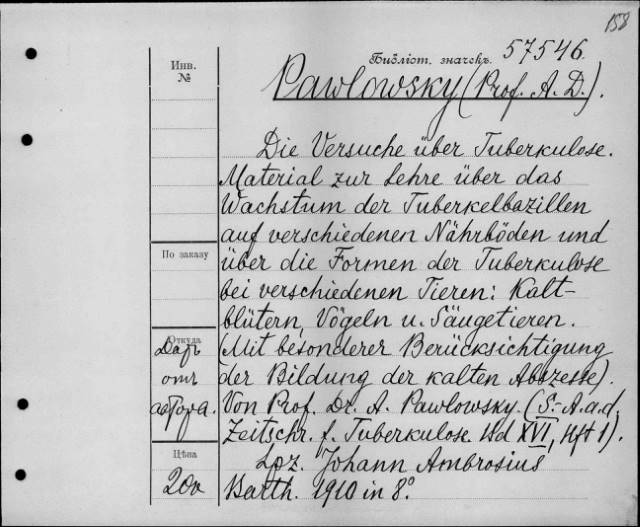 158
Библіот. значекъ. 57546.
Инв.
№
Pawlowsky (Prof. A. D.).
Die Versuche über Tuberkulose.
Material zur Lehre über das
Wachstum der Tuberkelbazillen
auf verschiedenen Nährböden und
По заказу
über die Formen der Tuberkulose
bei verschiedenen Tieren: Kalt-
blütern, Vögeln u. Säugetieren.
Откуда
Даръ
отъ
автора.
(Mit besonderer Berücksichtigung
der Bildung der kalten Abszesse).
Von Prof. Dr. A. Pawlowsky. (S.-A. a. d.
Zeitschr. f. Tuberkulose. Bd XVI, Hft 1).
Цѣна
Lpz. Johann Ambrosius
Barth. 1910 in 8°.